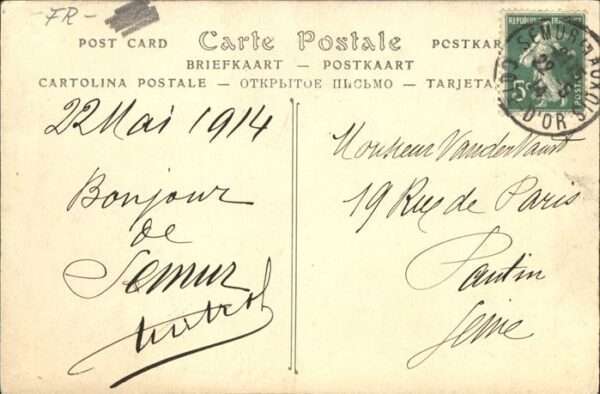 FR-
POST CARD Carte Postale POSTKAR
BRIEFKAART — POSTKAART
CARTOLINA POSTALE — ОТКРЫТОЕ ПІСЬМО — TARJETA
REPUBLIQUE FRANCAISE
5c
POSTES
SEMUR EN AUXOIS
COTE D'OR
22 Mai 1914
Bonjour
de
Semur
Monsieur
19 Rue de Paris
Pantin
Seine